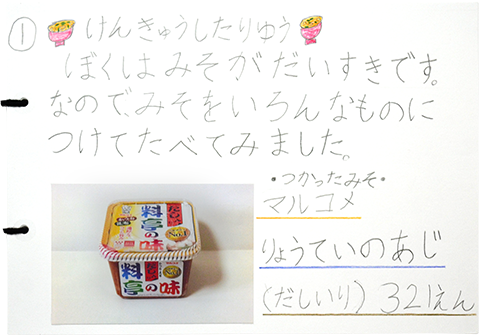 ① けんきゅうしたりゆう
ぼくはみそがだいすきです。
なので、みそをいろんなものに
つけてたべてみました。
•つかったみそ•
マルコメ
りょうていのあじ
(だしいり) 321えん
料亭の味
料亭の味